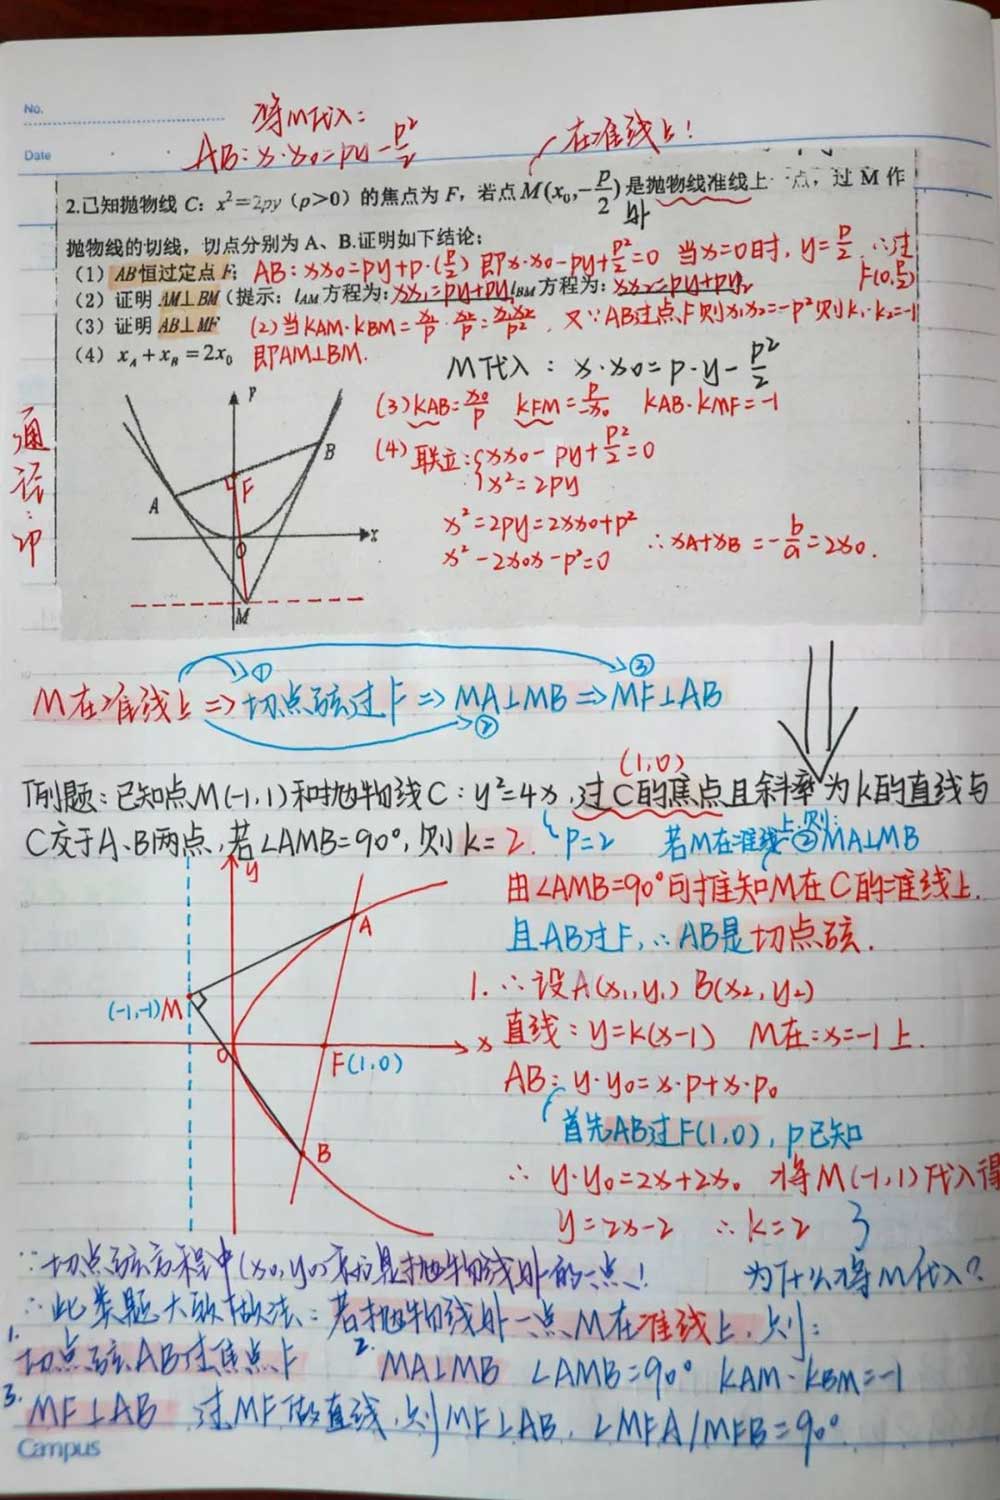 No.
将M代入:
AB: x·x₀=py-p²/2
在准线上!
Date
2.已知抛物线 C: x²=2py (p>0) 的焦点为 F, 若点 M(x₀,-p/2) 是抛物线准线上一点, 过 M 作
外
抛物线的切线, 切点分别为 A、B.证明如下结论:
(1) AB 恒过定点 F; AB: xx₀=py+p·(p/2) 即x·x₀-py+p²/2=0 当x=0时, y=p/2 ∴过
F(0,p/2)
(2) 证明 AM⊥BM (提示: l_AM 方程为: xx₁=py+py₁ l_BM 方程为: xx₂=py+py₂
(3) 证明 AB⊥MF (2)当KAM·KBM=x₁/p·x₂/p=x₁x₂/p², 又∵AB过点F则x₁x₂=-p²则k₁·k₂=-1
(4) x_A+x_B=2x₀ 即AM⊥BM.
M代入: x·x₀=p·y-p²/2
通
径:
2p
y
A
B
F
O
x
M
(3)KAB=x₀/p KFM=p/-x₀ KAB·KMF=-1
(4)联立:{xx₀-py+p²/2=0
x²=2py
x²=2py=2xx₀+p²
x²-2x₀x-p²=0 ∴xA+xB=-b/a=2x₀.
① ③
M在准线上⇒切点弦过F⇒MA⊥MB⇒MF⊥AB
②
(1,0)
例题:已知点M(-1,1)和抛物线C:y²=4x,过C的焦点且斜率为k的直线与
C交于A、B两点,若∠AMB=90°,则k=2. p=2 若M在准线上,则:②MA⊥MB
由∠AMB=90°可推知M在C的准线上.
且AB过F,∴AB是切点弦.
y
A
(-1,-1)M
O
x
F(1,0)
B
1.∴设A(x₁,y₁) B(x₂,y₂)
直线:y=k(x-1) M在:x=-1上.
AB: y·y₀=x·p+x·p₀
首先AB过F(1,0),p已知
∴y·y₀=2x+2x₀ 将M(-1,1)代入得
y=2x-2 ∴k=2
∵切点弦方程中(x₀,y₀)表示是抛物线外的一点! 为什么将M代入?
∴此类题大致做法:若抛物线外一点M在准线上,则:
1.切点弦AB过焦点F 2.MA⊥MB ∠AMB=90° KAM·KBM=-1
3.MF⊥AB 过MF做直线,则MF⊥AB, ∠MFA/MFB=90°
Campus